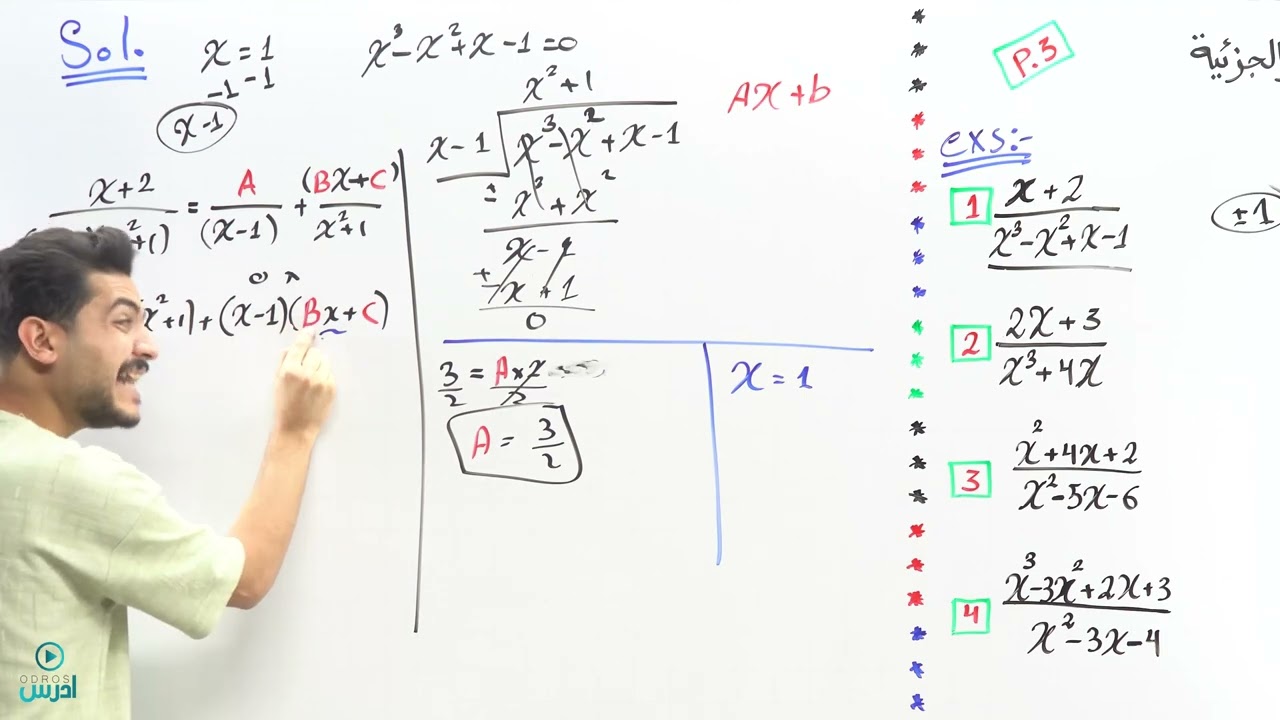 Sol.
x = 1
-1 -1
x-1
x³-x²+x-1=0
x+2 = A + (Bx+C)
(x-1) x²+1
²+1)
0
x²+1)+(x-1)(Bx+C)
x²+1
x-1 x³-x²+x-1
x³+x²
x-1
x+1
0
Ax+b
3/2 = A×2/2
A = 3/2
x = 1
P.3
الجزئية
exs:-
1 x+2
x³-x²+x-1
±1
2 2x+3
x³+4x
3 x²+4x+2
x²-5x-6
4 x³-3x²+2x+3
x²-3x-4
ODROS
ادرس